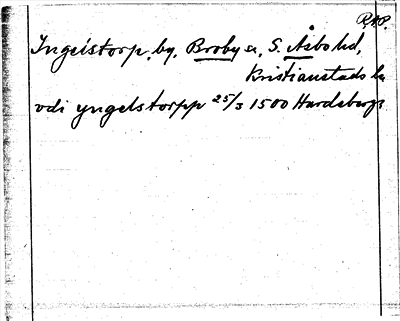 RAP.
Ingelstorp, by, Broby sn, S. Åsbo hd,
Kristianstads län
vdi yngelstorpp 25/3 1500 Hardeberga